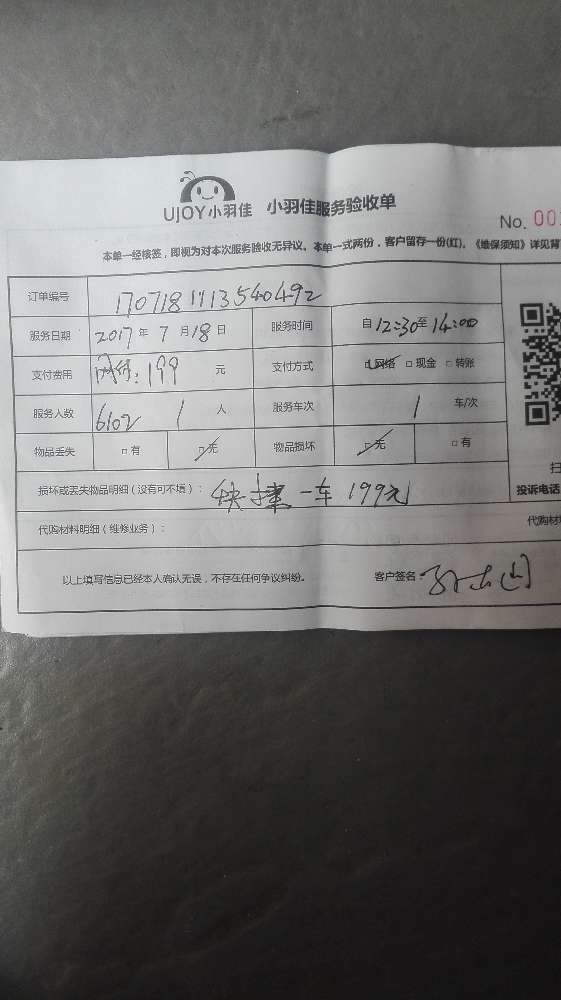 UJOY小羽佳 小羽佳服务验收单
No. 00
本单一经核签，即视为对本次服务验收无异议。本单一式两份，客户留存一份(红)。《维保须知》详见背
订单编号 1707181113540492
服务日期 2017年7月18日 服务时间 自12:30至14:00
支付费用 网络:199元 支付方式 网络 现金 转账
服务人数 6102 1人 服务车次 1车/次
物品丢失 有 无 物品损坏 无 有
损坏或丢失物品明细（没有可不填）： 快捷一车199元
投诉电话
代购材料明细（维修业务）： 代购材
以上填写信息已经本人确认无误，不存在任何争议纠纷。 客户签名：